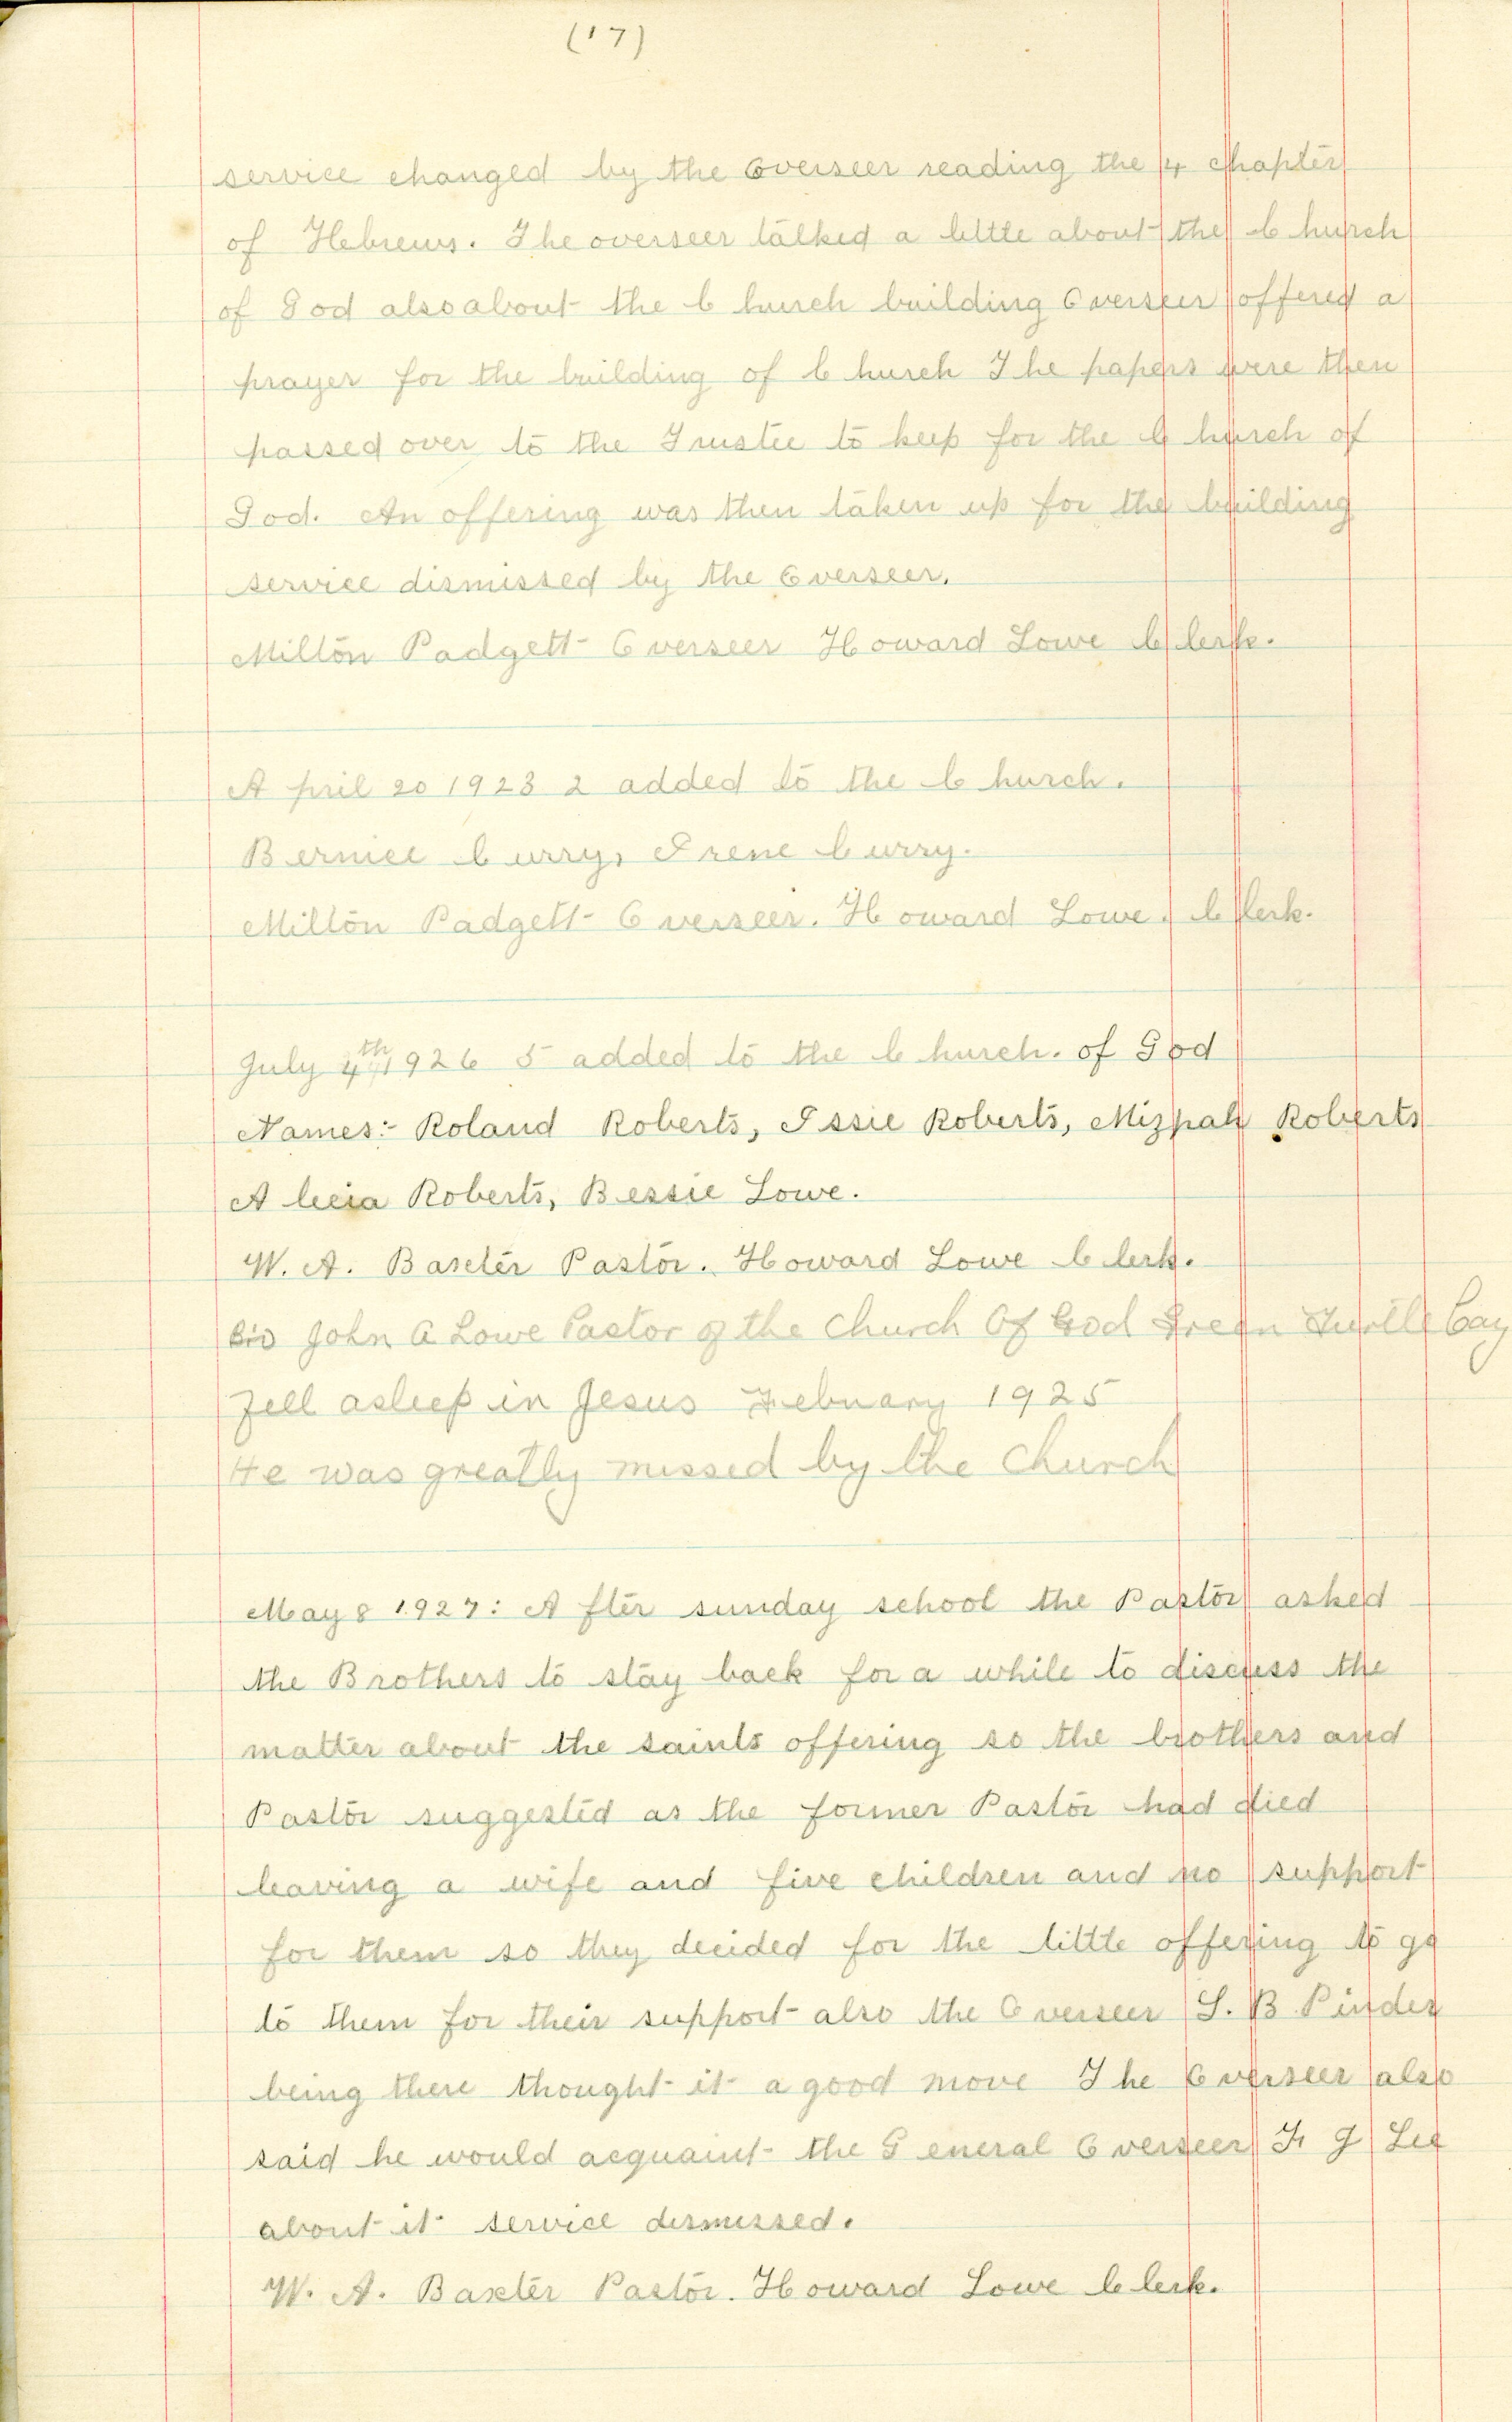 (17)
service changed by the Overseer reading the 4 chapter
of Hebrews. The overseer talked a little about the Church
of God also about the Church building Overseer offered a
prayer for the building of Church The papers were then
passed over to the Trustee to keep for the Church of
God. An offering was then taken up for the building
service dismissed by the Overseer.
Milton Padgett Overseer Howard Lowe Clerk.
April 20 1923 2 added to the Church.
Bernice Curry, Irene Curry.
Milton Padgett Overseer. Howard Lowe. Clerk.
July 4th 1926 5 added to the Church. of God
Names:- Roland Roberts, Issie Roberts, Mizpah Roberts
Alecia Roberts, Bessie Lowe.
W. A. Baxter Pastor. Howard Lowe Clerk.
Bro John A Lowe Pastor of the Church Of God Green Turtle Cay
Fell asleep in Jesus Febuary 1925
He was greatly missed by the Church
May 8 1927: After sunday school the Pastor asked
the Brothers to stay back for a while to discuss the
matter about the saints offering so the brothers and
Pastor suggested as the former Pastor had died
leaving a wife and five children and no support
for them so they decided for the little offering to go
to them for their support also the Overseer S. B. Pinder
being there thought it a good move The Overseer also
said he would acquaint the General Overseer F J Lee
about it service dismissed.
W. A. Baxter Pastor. Howard Lowe Clerk.